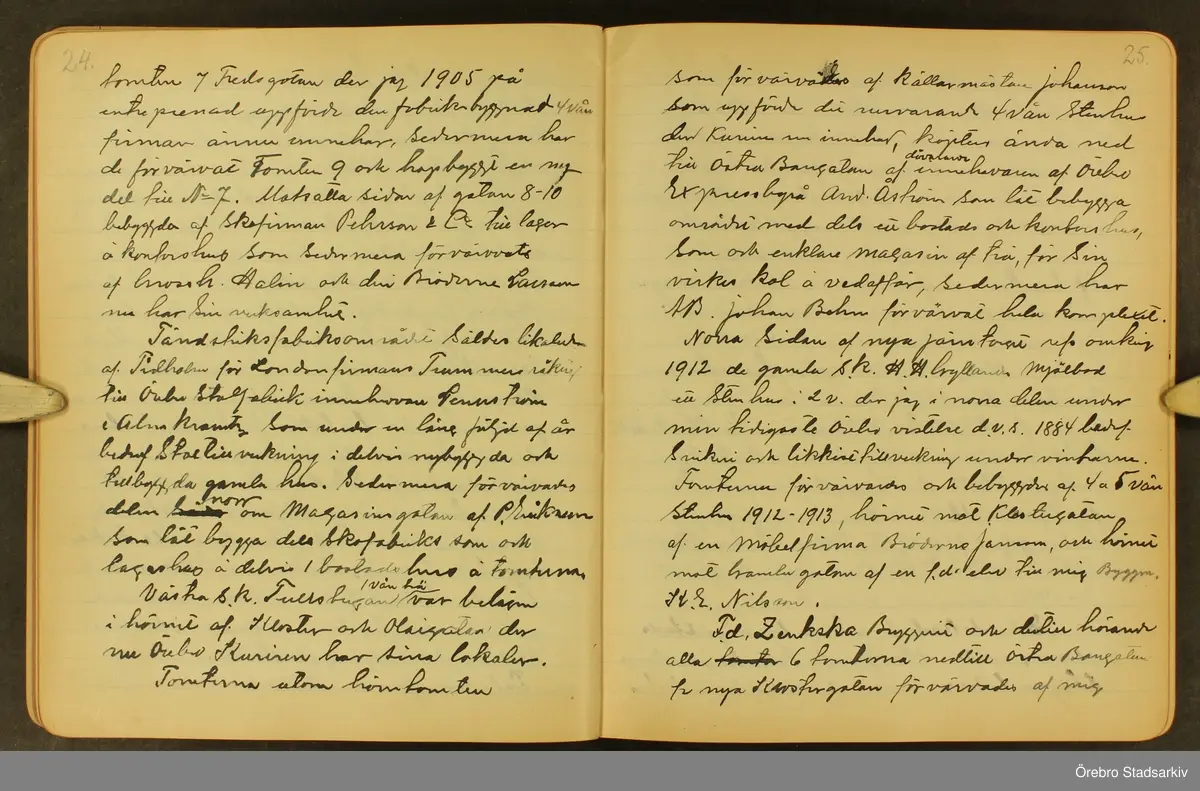 24.
tomten 7 Fredsgatan der jag 1905 på
entreprenad uppförde den fabriksbyggnad 4 vån
firman ännu innehar, sedermera har
de förvärvat Tomten 9 och hopbyggt en ny
del till No 7. Motsatta sidan af gatan 8-10
bebyggdes af Skofirman Pehrson & Co till lager
å kontorshus som sedermera förvärvats
af grossh. Halin och der Bröderna Larsson
nu har sin verksamhet.
Tändsticksfabriksområdet såldes likaledes
af Tidholm för Londonfirmans räkning
till Örebro Stolfabrik innehavare
i Alm Krantz som under en lång följd af år
bedref Stoltillverkning i delvis nybyggda och
tillbyggda gamla hus. Sedermera förvärvades
delen norr om Magasinsgatan af P. Erikson
som lät bygga dels skofabriks som och
lagerhus å delvis 1 bostadshus å tomterna
Västra s.k. Tullstugan 1 vån trä var belägen
i hörnet af Kloster och Olaigatan der
nu Örebro Kuriren har sina lokaler.
Tomterna utom hörntomten
25.
som förvärvades af Källarmästare Johanson
som uppförde det nuvarande 4 vån Stenhus
den Kuriren nu innehar, köptes ända ned
till Östra Bangatan af dåvarande innehavaren af Örebro
Expressbyrå And. Åström som lät bebygga
området med dels ett bostads och kontorshus,
som och enklare magasin af trä, för sin
virkes kol å vedaffär, sedermera har
AB. Johan Behm förvärvat hela komplexet.
Norra Sidan af nya järntorget refs omkring
1912 de gamla s.k. Mjölbod
ett Stenhus i 2 v. der jag i norra delen under
min tidigaste Örebro vistelse d.v.s. 1884 bedref
Snikeri och likkisttillverkning under vintrarne.
Tomterna förvärvades och bebyggdes af 4 a 5 vån
Stenhus 1912-1913, hörnet mot Klostergatan
af en Möbelfirma Bröderna Janson, och hörnet
mot gamla gatan af en f.d. elev till mig Byggm.
K.E. Nilsson.
F.d. Zenkska Bryggeriet och dertill hörande
alla 6 tomterna nedtill Östra Bangatan
fr nya Klostergatan förvärvades af mig
Örebro Stadsarkiv